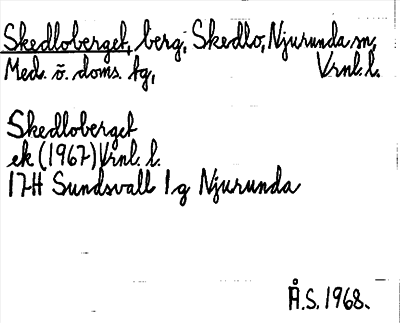 Skedloberget, berg, Skedlo, Njurunda sn,
Med. ö. doms. tg, Vrnl. l.
Skedloberget
ek (1967) Vrnl. l.
17H Sundsvall 1g Njurunda
Å.S. 1968.